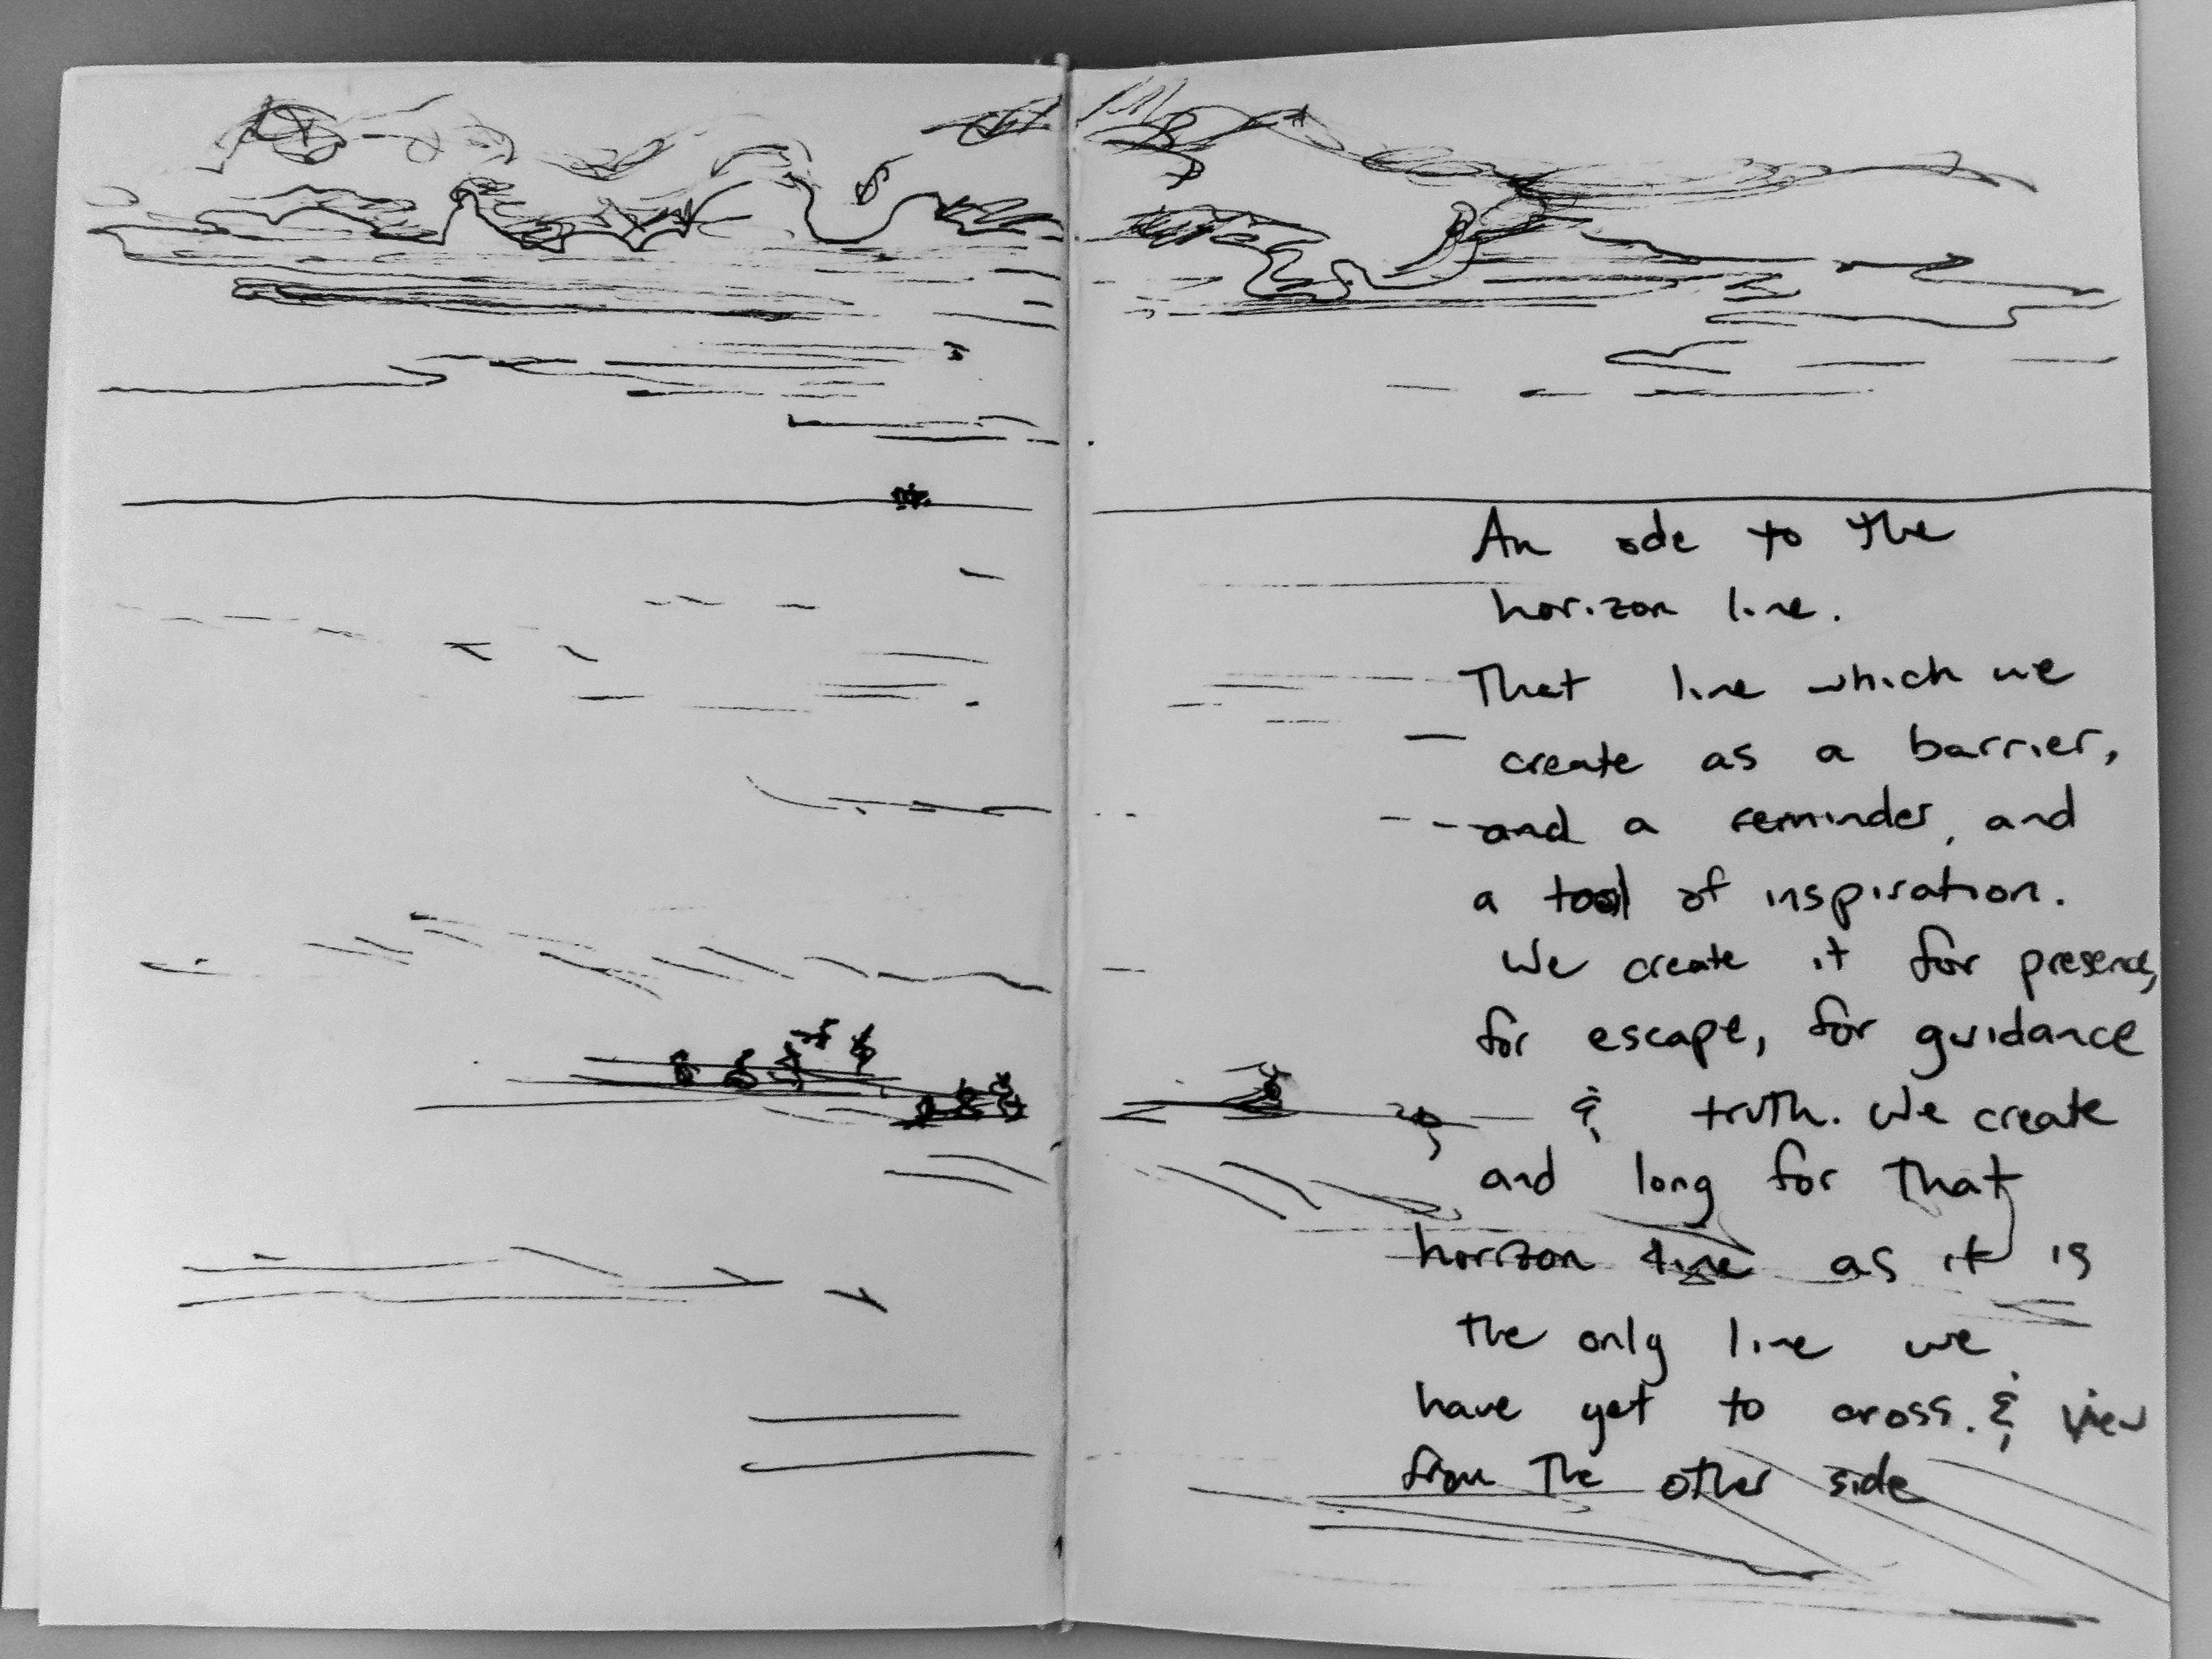 An ode to the
horizon line.
That line which we
create as a barrier,
and a reminder, and
a tool of inspiration.
We create it for presence,
for escape, for guidance
& truth. We create
and long for that
horizon line as it is
the only line we
have yet to cross. & view
from the other side